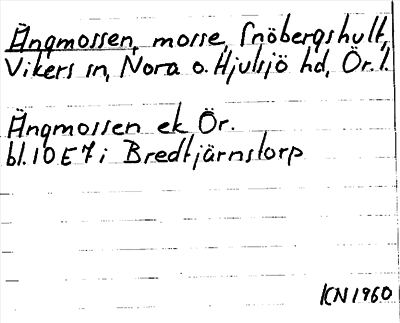 Ängmossen, mosse, Snöbergshult,
Vikers sn, Nora o. Hjulsjö hd, Ör. l.
Ängmossen ek Ör.
bl. 10 E 7 i Bredtjärnstorp
KN 1960